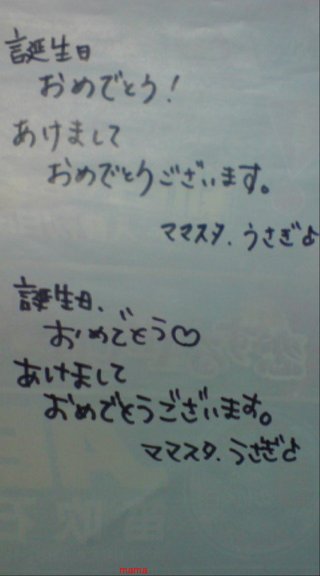 誕生日
おめでとう!
あけまして
おめでとうございます。
ママスタ.うさぎよ
誕生日、
おめでとう♡
あけまして
おめでとうございます。
ママスタ.うさぎよ
mama